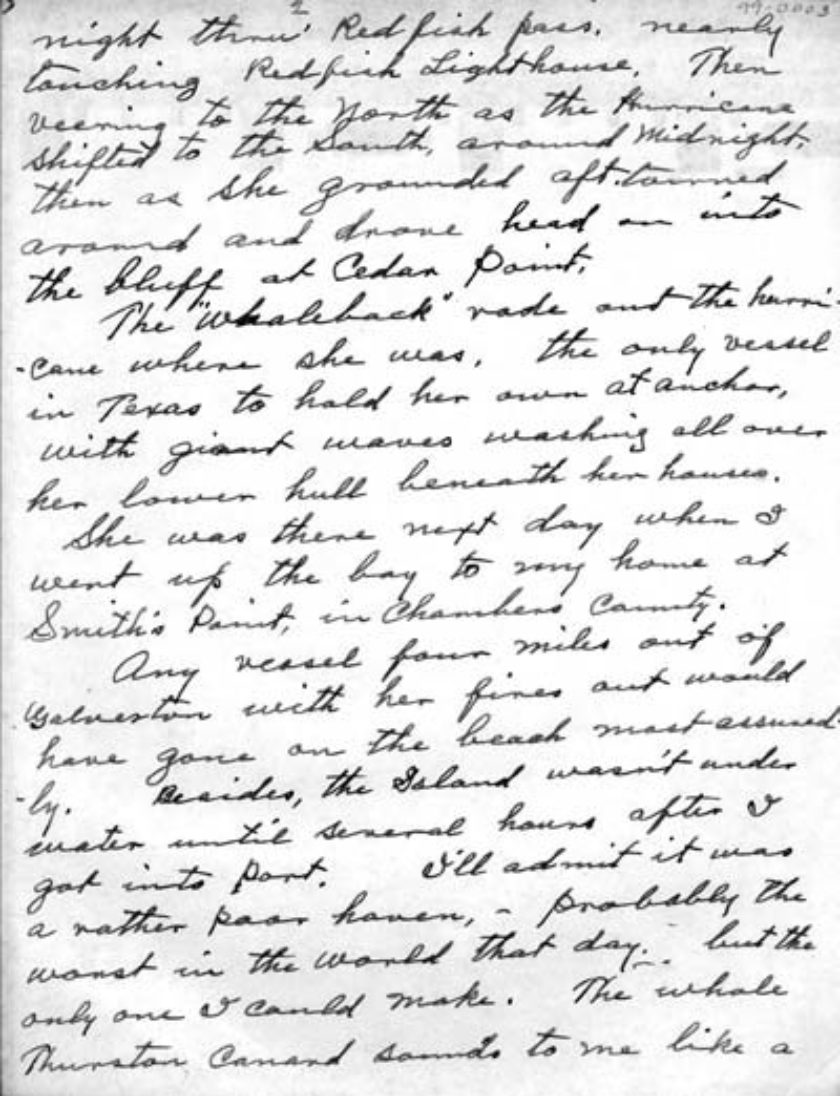 2
99-0003
night thru' Redfish pass, nearly
touching Redfish Lighthouse. Then
veering to the North as the Hurricane
shifted to the South, around Midnight,
then as she grounded aft. turned
around and drove head on into
the bluff at Cedar Point.
The "Whaleback" rode out the hurri-
-cane where she was, the only vessel
in Texas to hold her own at anchor,
with giant waves washing all over
her lower hull beneath her houses.
She was there next day when I
went up the bay to my home at
Smith's Point, in Chambers County.
Any vessel four miles out of
Galveston with her fires out would
have gone on the beach most assured-
-ly. Besides, the Island wasn't under
water until several hours after I
got into Port. I'll admit it was
a rather poor haven, - probably the
worst in the world that day. - but the
only one I could make. The whole
Thurston Canard sounds to me like a